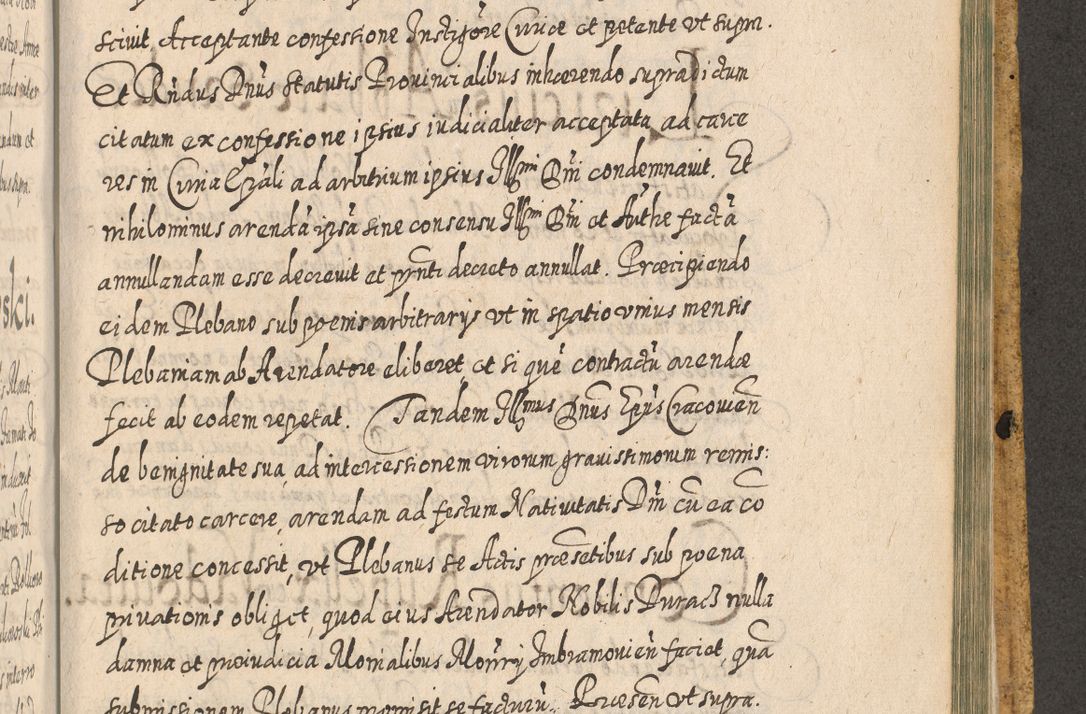 sciuit, Acceptante confessione Instigōre Curiæ et petente vt supra.
Et Rńdus Dnūs Statutis Prouincialibus inhærendo supradictum
citatum ex confessione ipsius iudicialiter acceptata ad carce
res in Curia Epāli ad arbitrium ipsius Illmi Dni condemnauit. Et
nihilominus arendā ipsā sine consensu Illmi Dni et Authe factā
annullandam esse decreuit et pnti decreto annullat. Præcipiendo
eidem Plebano sub poenis arbitrarijs vt in spatio vnius mensis
Plebaniam ab Arendatore eliberet et si quē contractū arendæ
fecit ab eodem repetat. Tandem Illmus Dnus Epus Cracouien
de benignitate sua, ad intercessionem virorum grauissimorum remis:
so citato carcere, arendam ad festum Natiuitatis Dni cū ea cō
ditione concessit, vt Plebanus se Actis præsetibus sub poena
priuationis obliget, quod eius Arendator Nobilis Duracz nulla
damna et præiudicia Monialibus Monrij Imbramouien faciet, quā
submissionem Plebanus promisit se facturū. Præsen vt supra.